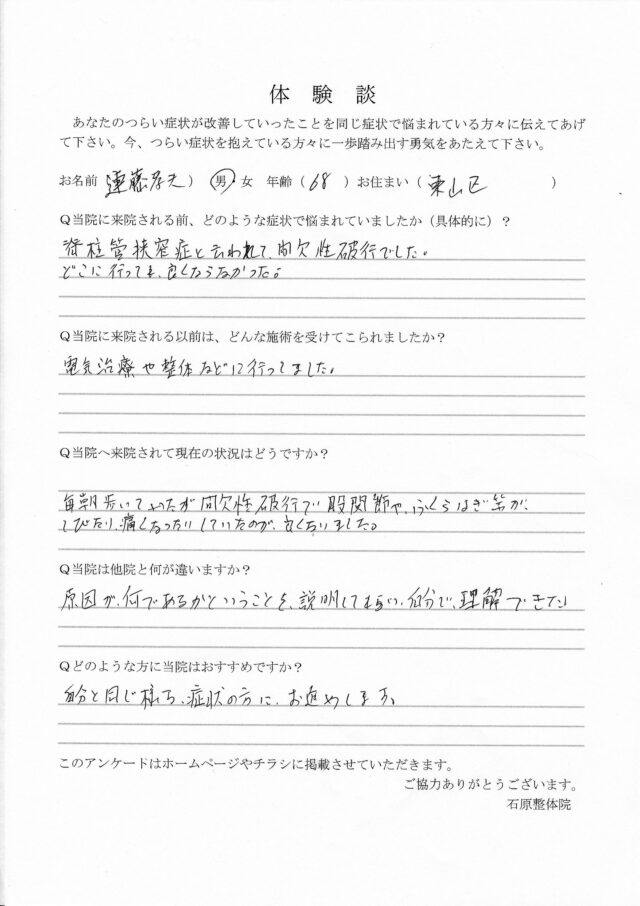 体 験 談
あなたのつらい症状が改善していったことを同じ症状で悩まれている方々に伝えてあげ
て下さい。今、つらい症状を抱えている方々に一歩踏み出す勇気をあたえて下さい。
お名前 遠藤孝夫) 男・女 年齢(68)お住まい(東山区)
Q当院に来院される前、どのような症状で悩まれていましたか(具体的に)?
脊柱管狭窄症と云われて、間欠性破行でした。
どこに行っても、良くならなかった。
Q当院に来院される以前は、どんな施術を受けてこられましたか?
電気治療や整体などに行ってました。
Q当院へ来院されて現在の状況はどうですか?
毎朝歩いていたが間欠性破行で股関節や、ふくらはぎ等が、
しびたり、痛くなったりしていたのが、良くなりました。
Q当院は他院と何が違いますか?
原因が、何であるかということを、説明してもらい、自分で、理解できた
Qどのような方に当院はおすすめですか?
自分と同じ様な、症状の方に、お進めします。
このアンケードはホームページやチラシに掲載させていただきます。
ご協力ありがとうございます。
石原整体院